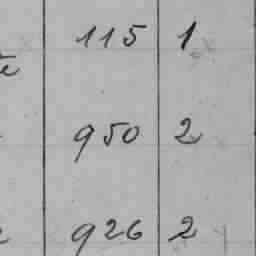 115 1
950 2
926 2